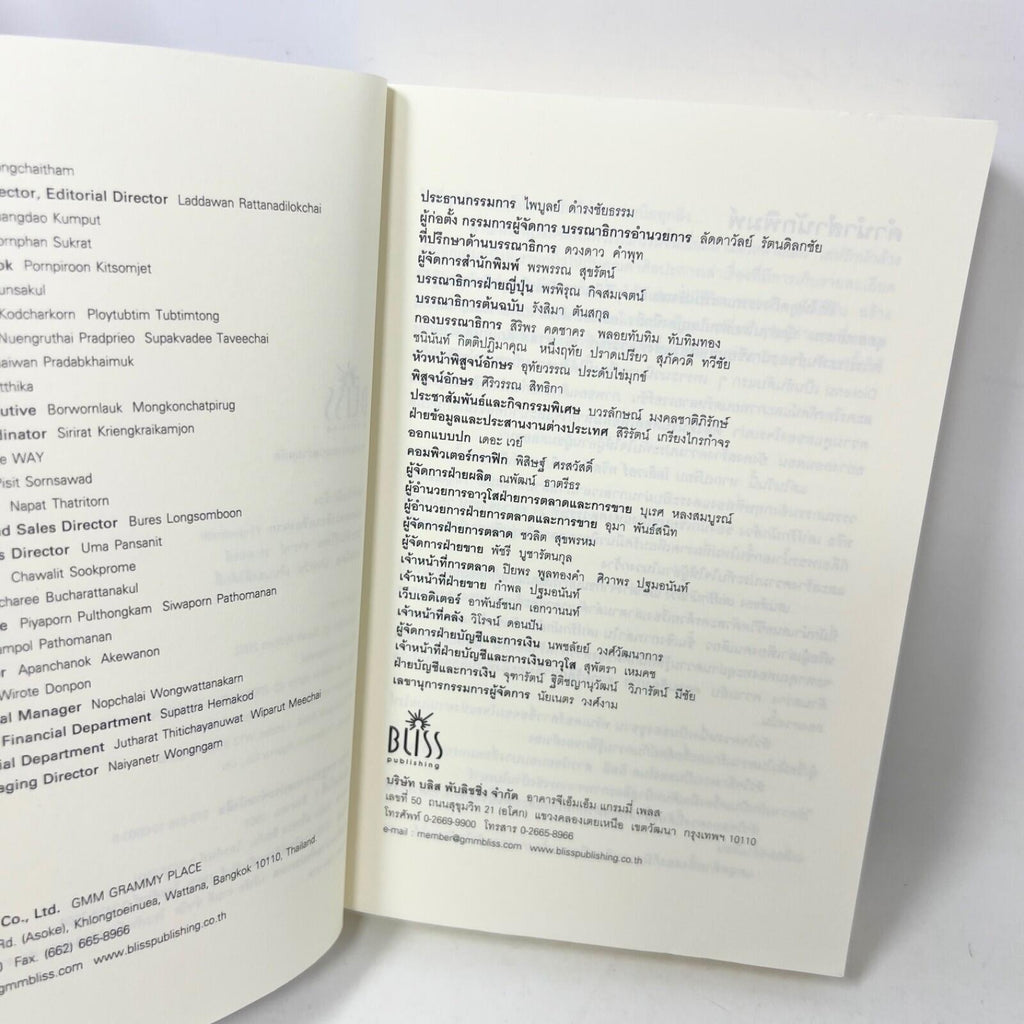 ngchaitham
ector, Editorial Director Laddawan Rattanadilokchai
angdao Kumput
ornphan Sukrat
ok Pornpiroon Kitsomjet
unsakul
Kodcharkorn Ploytubtim Tubtimtong
Nuengruthai Pradprieo Supakvadee Taveechai
aiwan Pradabkhaimuk
tthika
utive Borwornlauk Mongkonchatpirug
dinator Sirirat Kriengkraikamjon
e WAY
Pisit Sornsawad
Napat Thatritorn
nd Sales Director Bures Longsomboon
s Director Uma Pansanit
Chawalit Sookprome
charee Bucharattanakul
e Piyaporn Pulthongkam Siwaporn Pathomanan
mpol Pathomanan
or Apanchanok Akewanon
Wirote Donpon
al Manager Nopchalai Wongwattanakarn
Financial Department Supattra Hemakod
ial Department Jutharat Thitichayanuwat Wiparut Meechai
aging Director Naiyanetr Wongngam
Co., Ltd. GMM GRAMMY PLACE
Rd. (Asoke), Khlongtoeinuea, Wattana, Bangkok 10110, Thailand.
) Fax. (662) 665-8966
gmmbliss.com www.blisspublishing.co.th
ประธานกรรมการ ไพบูลย์ ดำรงชัยธรรม
ผู้ก่อตั้ง กรรมการผู้จัดการ บรรณาธิการอำนวยการ ลัดดาวัลย์ รัตนดิลกชัย
ที่ปรึกษาด้านบรรณาธิการ ดวงดาว คำพุท
ผู้จัดการสำนักพิมพ์ พรพรรณ สุขรัตน์
บรรณาธิการฝ่ายญี่ปุ่น พรพิรุณ กิจสมเจตน์
บรรณาธิการต้นฉบับ รังสิมา ตันสกุล
กองบรรณาธิการ สิริพร คดชาคร พลอยทับทิม ทับทิมทอง
ชนินันท์ กิตติปฏิมาคุณ หนึ่งฤทัย ปราดเปรียว สุภัควดี ทวีชัย
หัวหน้าพิสูจน์อักษร อุทัยวรรณ ประดับไข่มุกข์
พิสูจน์อักษร ศิริวรรณ สิทธิกา
ประชาสัมพันธ์และกิจกรรมพิเศษ บวรลักษณ์ มงคลชาติภิรักษ์
ฝ่ายข้อมูลและประสานงานต่างประเทศ สิริรัตน์ เกรียงไกรกำจร
ออกแบบปก เดอะ เวย์
คอมพิวเตอร์กราฟิก พิสิษฐ์ ศรสวัสดิ์
ผู้จัดการฝ่ายผลิต ณพัฒน์ ธาตรีธร
ผู้อำนวยการอาวุโสฝ่ายการตลาดและการขาย บุเรศ หลงสมบูรณ์
ผู้อำนวยการฝ่ายการตลาดและการขาย อุมา พันธ์สนิท
ผู้จัดการฝ่ายการตลาด ชวลิต สุขพรหม
ผู้จัดการฝ่ายขาย พัชรี บูชารัตนกุล
เจ้าหน้าที่การตลาด ปิยพร พูลทองคำ ศิวาพร ปฐมอนันท์
เจ้าหน้าที่ฝ่ายขาย กำพล ปฐมอนันท์
เว็บเอดิเตอร์ อาพันธ์ชนก เอกวานนท์
เจ้าหน้าที่คลัง วิโรจน์ ดอนปัน
ผู้จัดการฝ่ายบัญชีและการเงิน นพชลัยย์ วงศ์วัฒนาการ
เจ้าหน้าที่ฝ่ายบัญชีและการเงินอาวุโส สุพัตรา เหมคช
ฝ่ายบัญชีและการเงิน จุฑารัตน์ ฐิติชญานุวัฒน์ วิภารัตน์ มีชัย
เลขานุการกรรมการผู้จัดการ นัยเนตร วงศ์งาม
BLISS
publishing
บริษัท บลิส พับลิชชิ่ง จำกัด อาคารจีเอ็มเอ็ม แกรมมี่ เพลส
เลขที่ 50 ถนนสุขุมวิท 21 (อโศก) แขวงคลองเตยเหนือ เขตวัฒนา กรุงเทพฯ 10110
โทรศัพท์ 0-2669-9900 โทรสาร 0-2665-8966
e-mail : member@gmmbliss.com www.blisspublishing.co.th